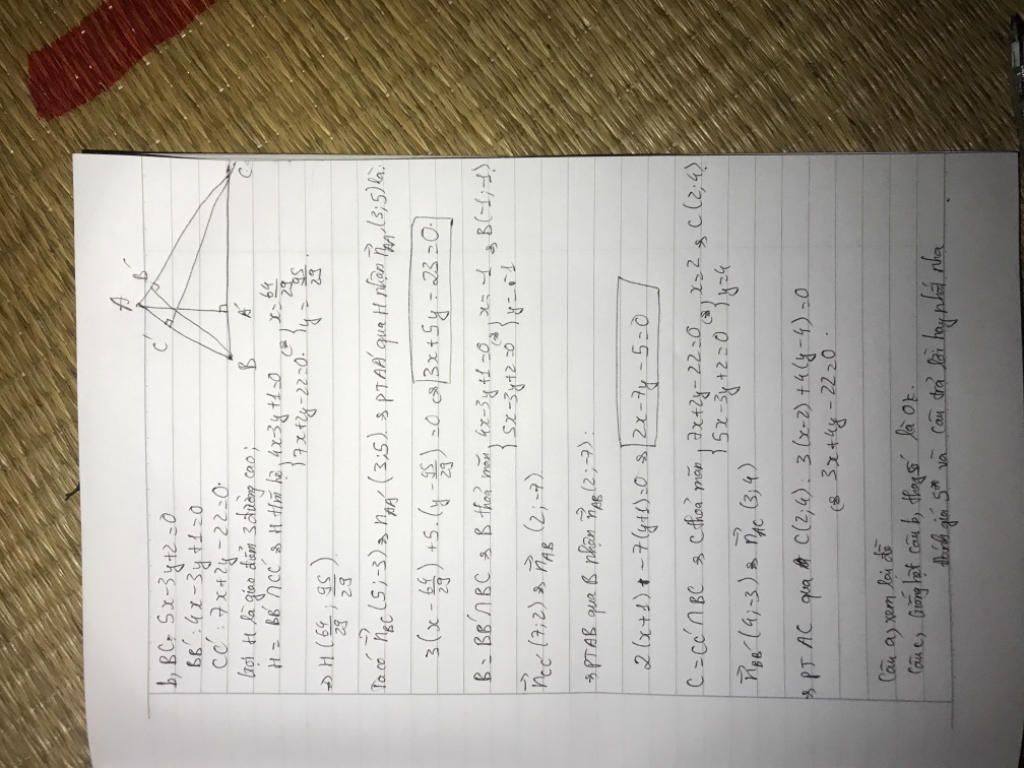 b, BC: 5x-3y+2=0
BB': 4x-3y+1=0
CC': 7x+2y-22=0.
A
B'
C'
B
A'
C
Gọi H là giao điểm 3 đường cao;
H = BB'∩CC' => H t/m hệ { 4x-3y+1=0 (=) { x = 64/29
7x+2y-22=0. y = 95/29
=> H(64/29; 95/29)
Ta có n⃗BC(5;-3) => n⃗AA'(3;5) => PT AA' qua H nhận n⃗AA'(3;5) là:
3(x-64/29)+5.(y-95/29)=0 => 3x+5y-23=0.
B = BB'∩BC => B thỏa mãn { 4x-3y+1=0 (=) { x=-1 => B(-1;-1)
5x-3y+2=0 y=-1
n⃗CC'(7;2) => n⃗AB(2;-7)
=> PT AB qua B nhận n⃗AB(2;-7):
2(x+1)-7(y+1)=0 => 2x-7y-5=0
C = CC'∩BC => C thỏa mãn { 7x+2y-22=0 (=) { x=2 => C(2;4)
5x-3y+2=0 y=4
n⃗BB'(4;-3) => n⃗AC(3;4)
=> PT AC qua C(2;4): 3(x-2)+4(y-4)=0
(=) 3x+4y-22=0.
Câu a, xem lại đề
Câu c, Giống hệt câu b, thay số là Ok.
Đánh giá 5* và câu trả lời hay nhất nha